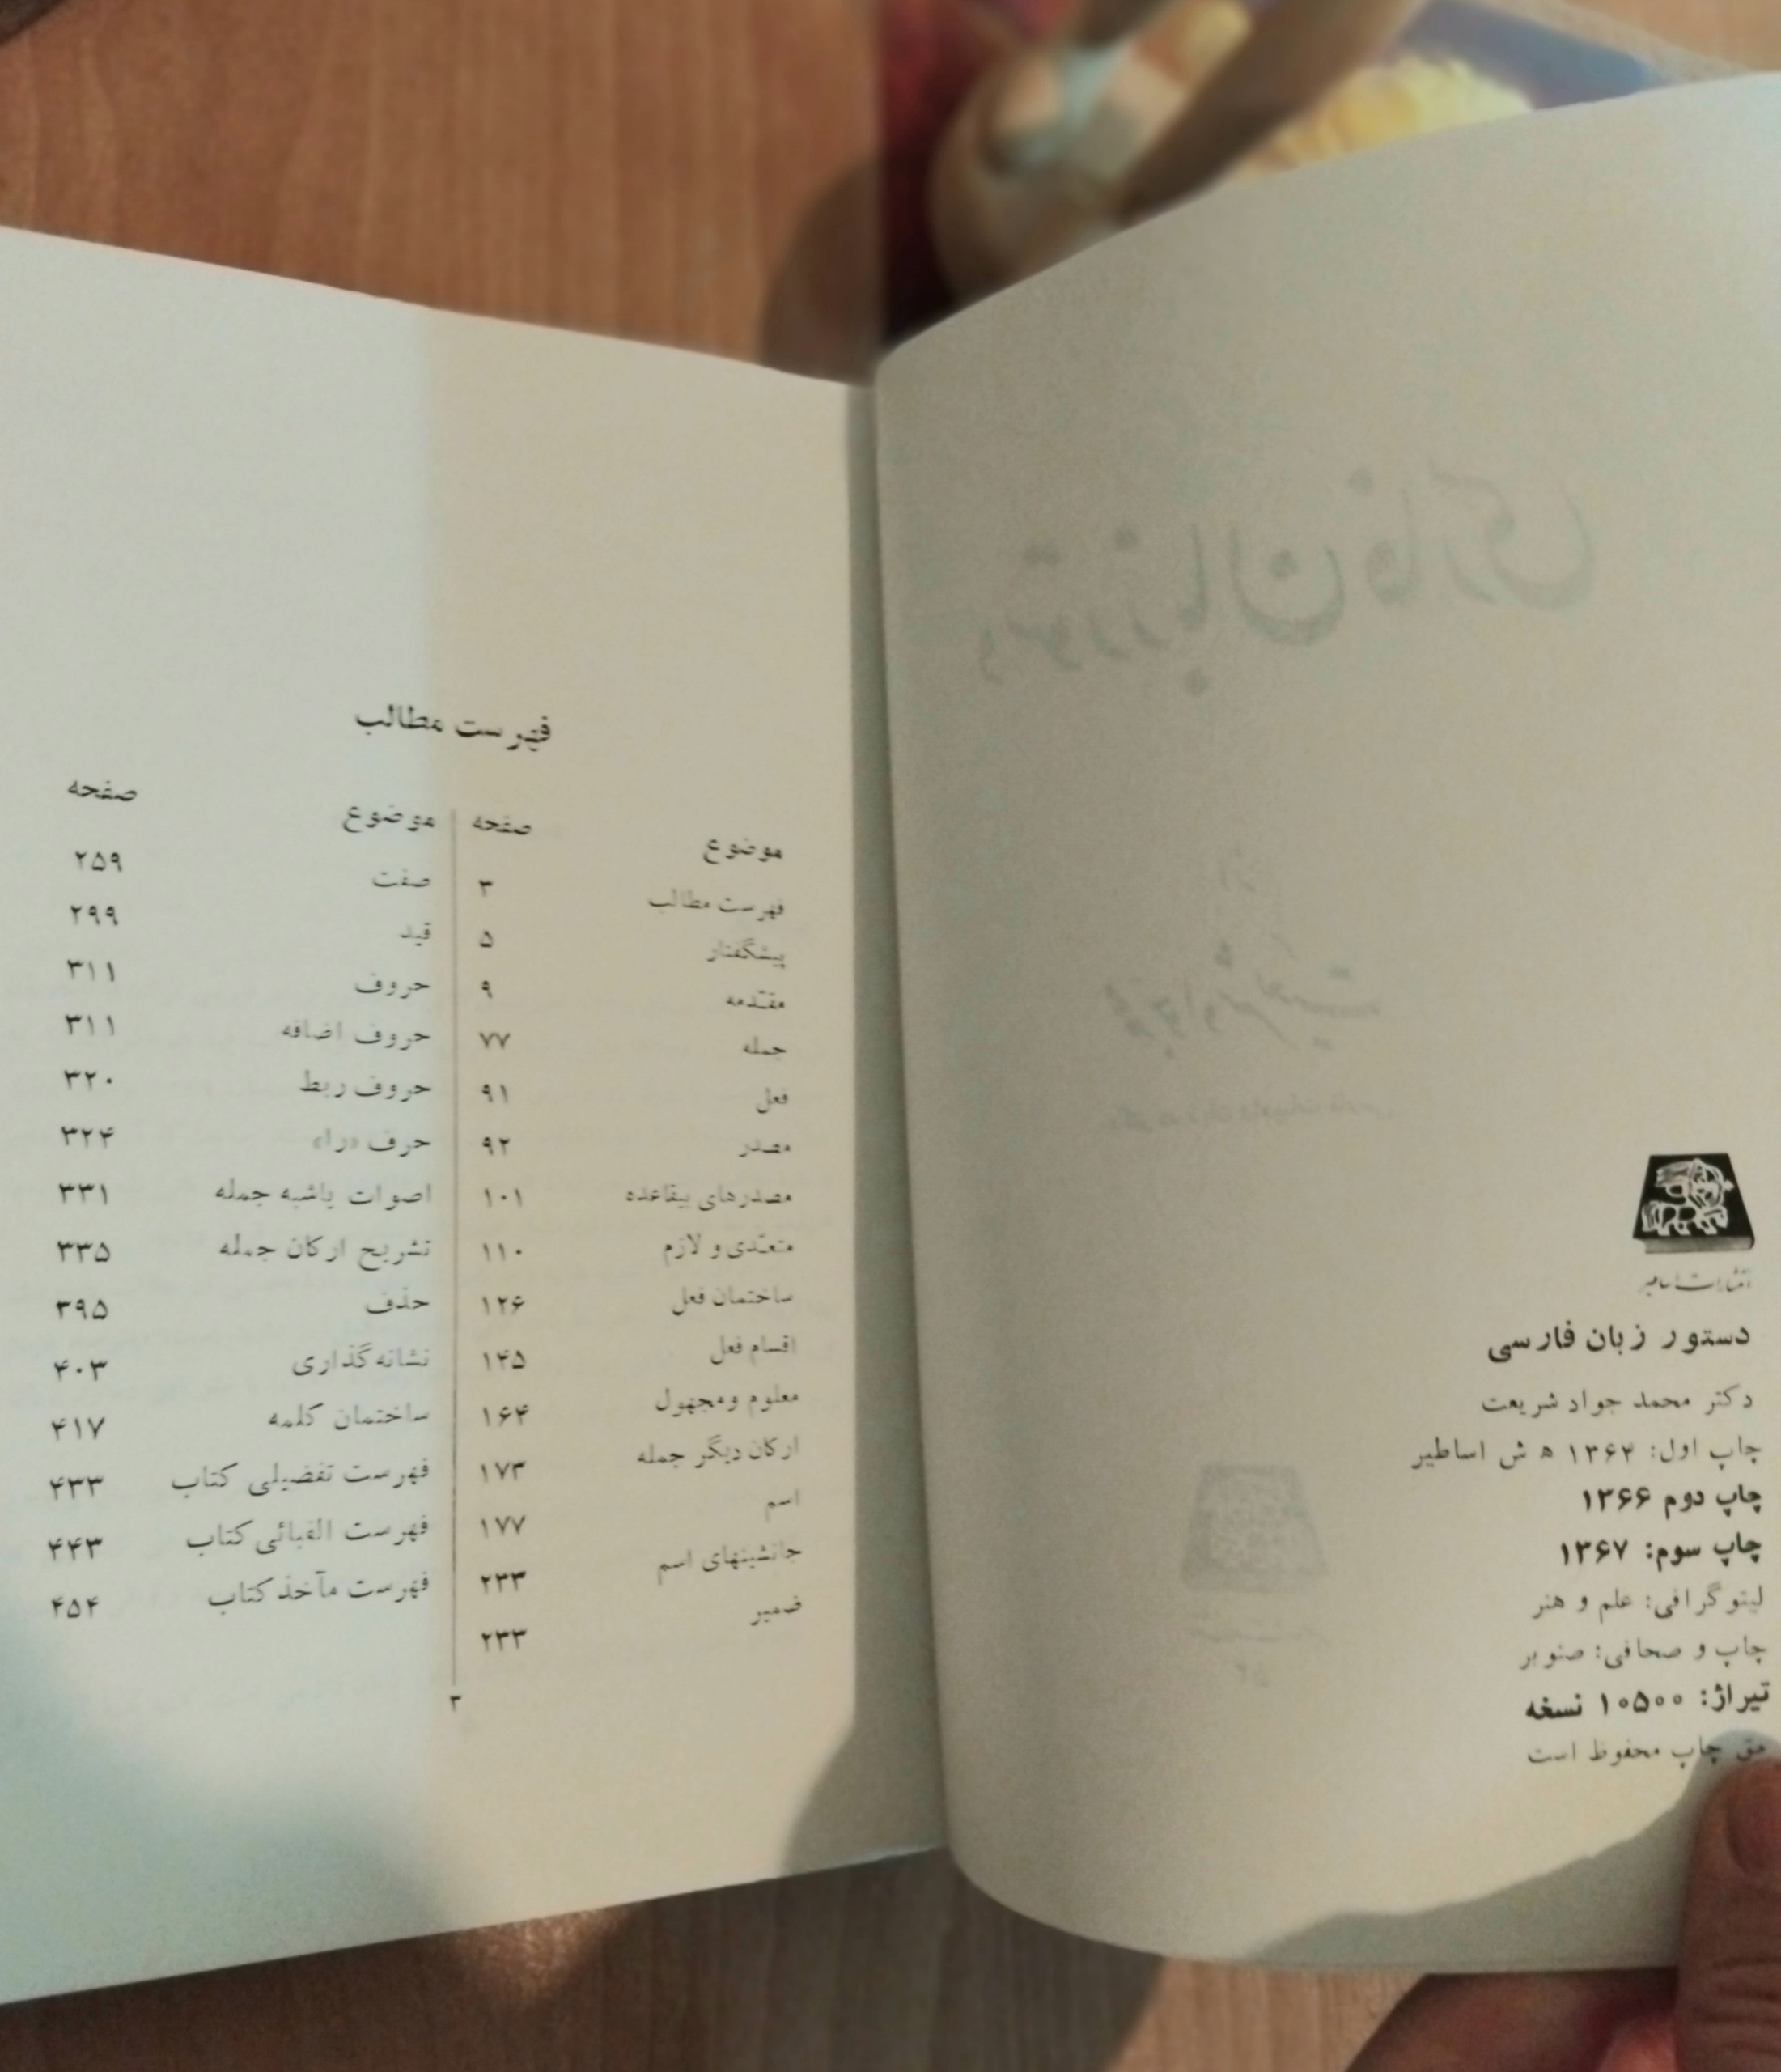 انتشارات اساطیر
دستور زبان فارسی
دکتر محمد جواد شریعت
چاپ اول: ۱۳۶۴ ه ش اساطیر
چاپ دوم ۱۳۶۶
چاپ سوم: ۱۳۶۷
لیتوگرافی: علم و هنر
چاپ و صحافی: صنوبر
تیراژ: ۱۰۵۰۰ نسخه
حق چاپ محفوظ است
فهرست مطالب
موضوع صفحه
فهرست مطالب ۳
پیشگفتار ۵
مقدّمه ۹
جمله ۷۷
فعل ۹۱
مصدر ۹۲
مصدرهای بیقاعده ۱۰۱
متعدّی و لازم ۱۱۰
ساختمان فعل ۱۲۶
اقسام فعل ۱۴۵
معلوم ومجهول ۱۶۴
ارکان دیگر جمله ۱۷۳
اسم ۱۷۷
جانشینهای اسم ۲۳۳
ضمیر ۲۳۳
موضوع صفحه
صفت ۲۵۹
قید ۲۹۹
حروف ۳۱۱
حروف اضافه ۳۱۱
حروف ربط ۳۲۰
حرف «را» ۳۲۴
اصوات یاشبه جمله ۳۳۱
تشریح ارکان جمله ۳۳۵
حذف ۳۹۵
نشانه گذاری ۴۰۳
ساختمان کلمه ۴۱۷
فهرست تفضیلی کتاب ۴۳۳
فهرست الفبائی کتاب ۴۴۳
فهرست مآخذ کتاب ۴۵۴
۳